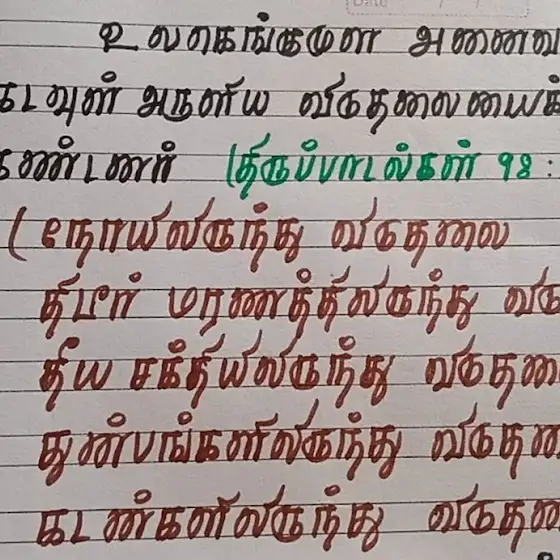 உலகெங்குமுள அனைவ
கடவுள் அருளிய விடுதலையைக்
கண்டனர் (திருப்பாடல்கள் 98:
(நோயிலிருந்து விடுதலை
திடீர் மரணத்திலிருந்து விடு
தீய சக்தியிலிருந்து விடுதலை
துன்பங்களிலிருந்து விடுதலை
கடன்களிலிருந்து விடுதலை